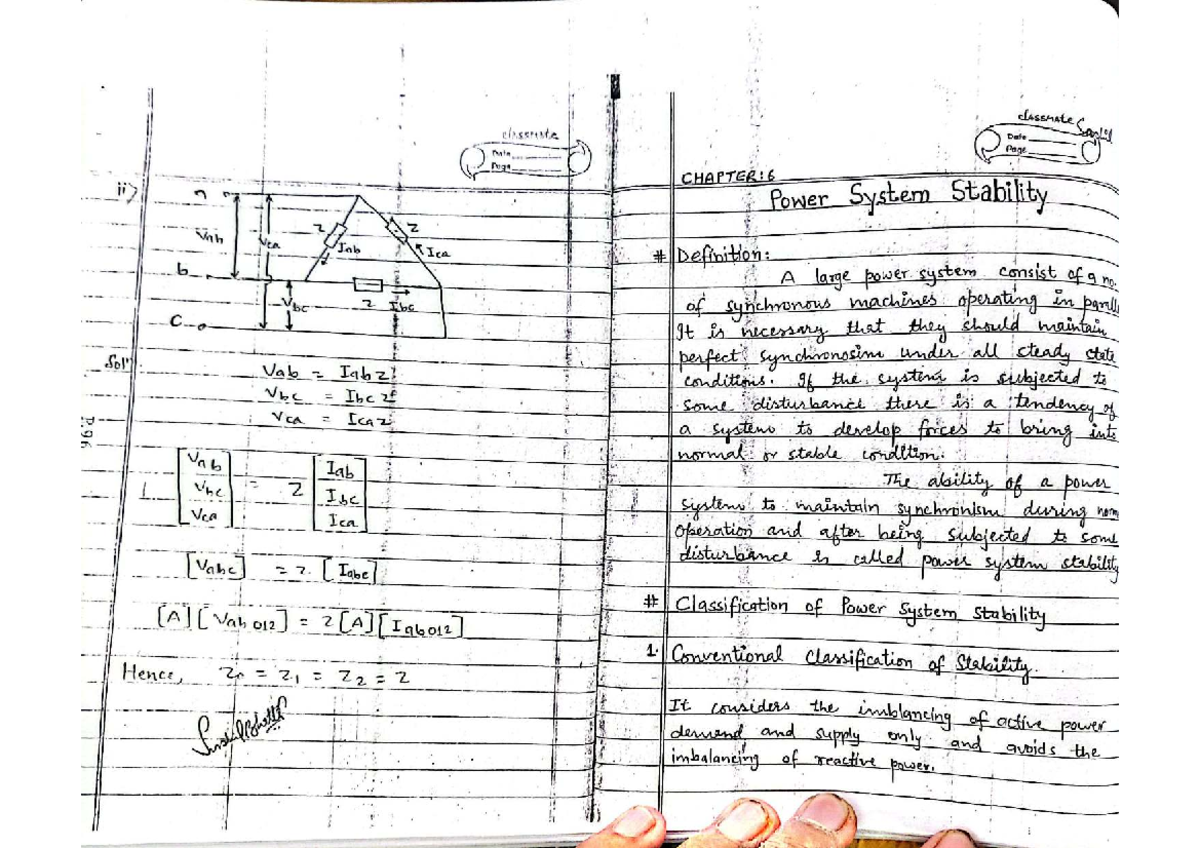 classmate
Date
Page
ii)
a
Vab
Vca
z
Iab
z
Ica
b
Vbc
z
Ibc
C
Solⁿ
Vab = Iab z
Vbc = Ibc z
Vca = Ica z
P.96
[Vab Vbc Vca] = z [Iab Ibc Ica]
[Vabc] = z. [Iabc]
[A][Vab012] = z[A][Iab012]
Hence, Z0 = Z1 = Z2 = Z
classmate
Date
Page
CHAPTER:6
Power System Stability
# Definition:
A large power system consist of a no.
of synchronous machines operating in parall
It is necessary that they should maintain
perfect synchronosim under all steady state
conditions. If the system is subjected to
some disturbance there is a tendency of
a system to develop forces to bring into
normal or stable condition.
The ability of a power
system to maintain synchronism during nom
operation and after being subjected to some
disturbance is called power system stability
# Classification of Power System Stability
1. Conventional Classification of Stability.
It considers the imblancing of active power
demand and supply only and avoids the
imbalancing of reactive power.